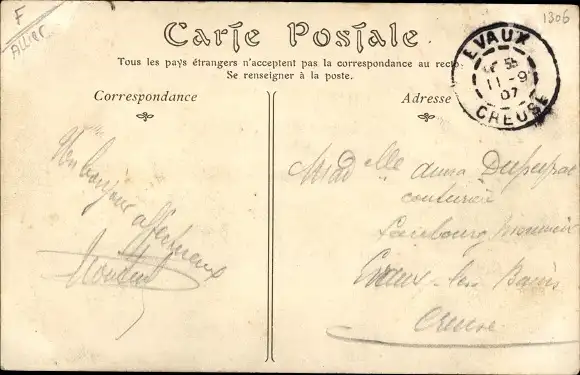 F
Allier
1306
Carte Postale
Tous les pays étrangers n'acceptent pas la correspondance au recto.
Se renseigner à la poste.
EVAUX
11-9
07
CREUSE
Correspondance
Un bonjour affectueux
Adresse
Madelle Anna Dupeyrat
couturière
Faubourg
Evaux-les-Bains
Creuse